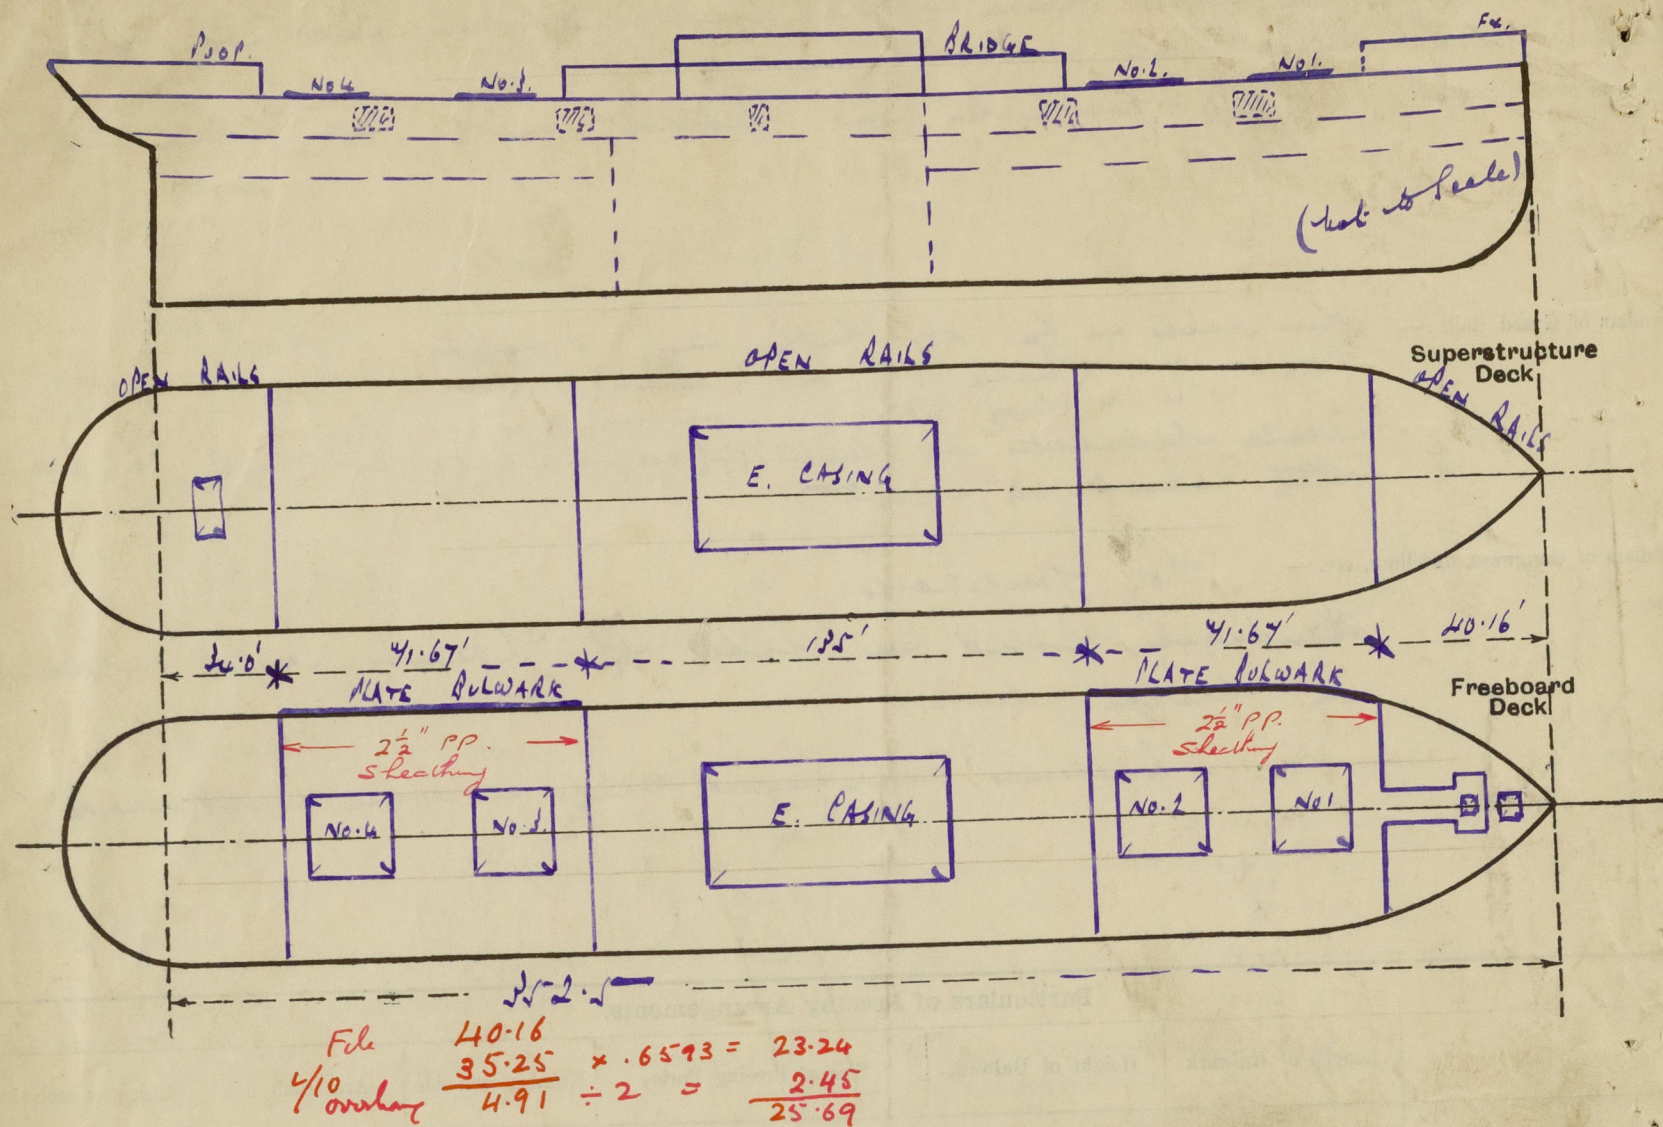 POOP.
BRIDGE
No 4
No. 3.
No. 2.
No 1.
(not to Scale)
OPEN RAILS
OPEN RAILS
Superstructure
Deck
OPEN RAILS
E. CASING
34.0'
71.67'
135'
71.67'
40.16'
PLATE BULWARK
PLATE BULWARK
Freeboard
Deck
2½" P.P.
sheathing
2½" P.P.
sheathing
No. 4
No. 3.
E. CASING
No. 2
No 1
352.5
Fcle 40.16
35.25 × .6593 = 23.24
L/10 overhang 4.91 ÷ 2 = 2.45
25.69